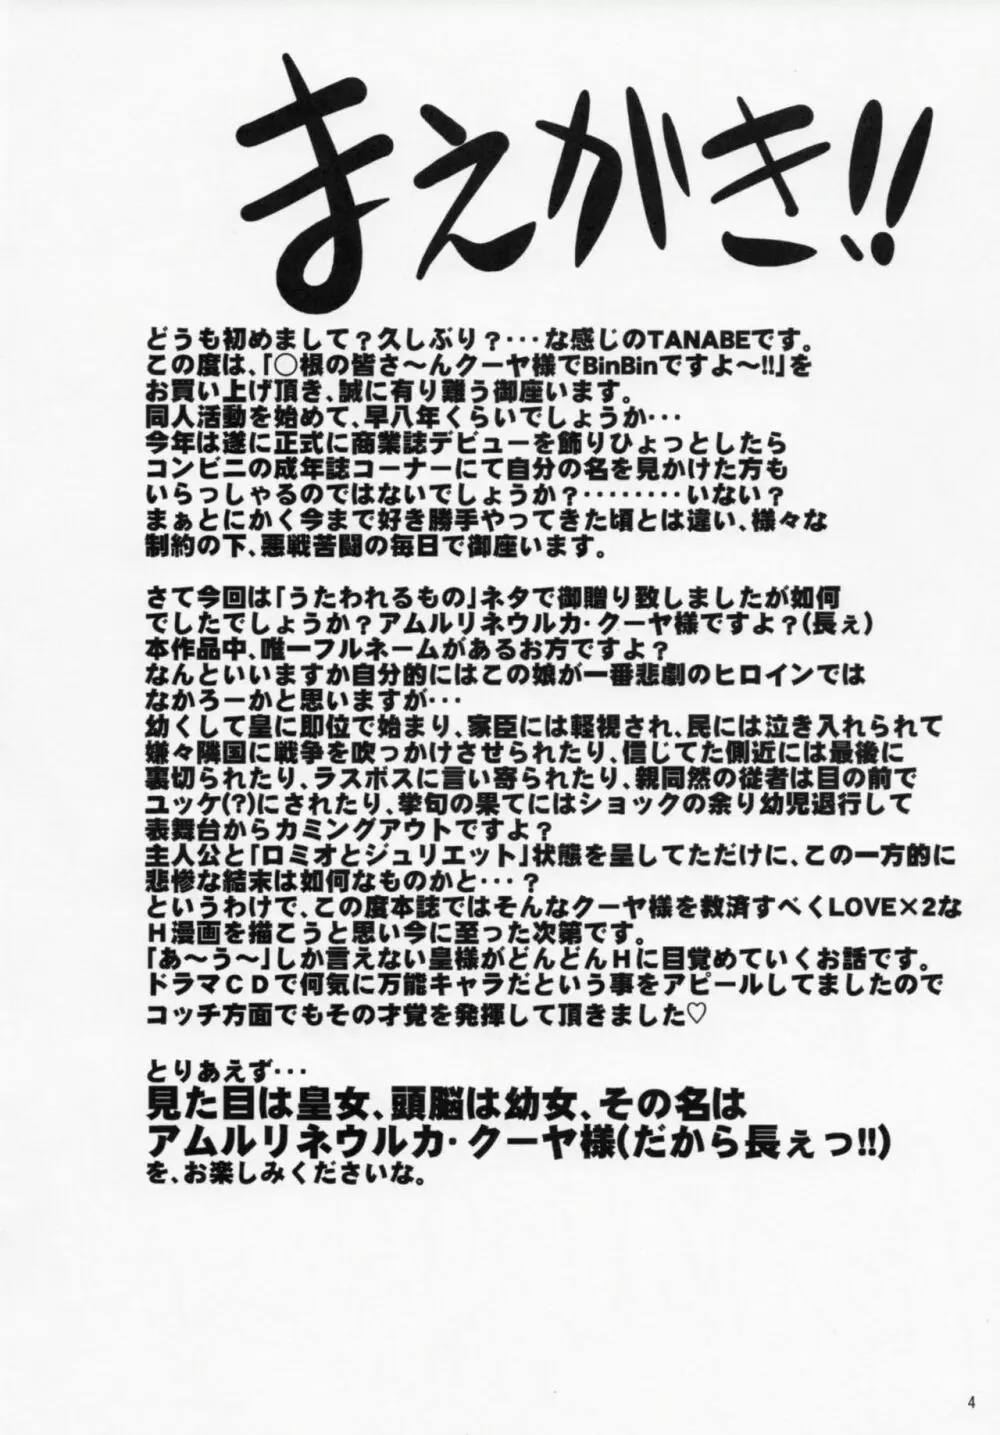 まえがき!!
どうも初めまして？久しぶり？･･･な感じのTANABEです。
この度は、｢◯根の皆さ～んクーヤ様でBinBinですよ～!!｣を
お買い上げ頂き、誠に有り難う御座います。
同人活動を始めて、早八年くらいでしょうか･･･
今年は遂に正式に商業誌デビューを飾りひょっとしたら
コンビニの成年誌コーナーにて自分の名を見かけた方も
いらっしゃるのではないでしょうか？････････いない？
まぁとにかく今まで好き勝手やってきた頃とは違い、様々な
制約の下、悪戦苦闘の毎日で御座います。
さて今回は｢うたわれるもの｣ネタで御贈り致しましたが如何
でしたでしょうか？アムルリネウルカ･クーヤ様ですよ？(長ぇ)
本作品中、唯一フルネームがあるお方ですよ？
なんといいますか自分的にはこの娘が一番悲劇のヒロインでは
なかろーかと思いますが･･･
幼くして皇に即位で始まり、家臣には軽視され、民には泣き入れられて
嫌々隣国に戦争を吹っかけさせられたり、信じてた側近には最後に
裏切られたり、ラスボスに言い寄られたり、親同然の従者は目の前で
ユッケ(?)にされたり、挙句の果てにはショックの余り幼児退行して
表舞台からカミングアウトですよ？
主人公と｢ロミオとジュリエット｣状態を呈してただけに、この一方的に
悲惨な結末は如何なものかと･･･？
というわけで、この度本誌ではそんなクーヤ様を救済すべくLOVE×2な
Ｈ漫画を描こうと思い今に至った次第です。
｢あ～う～｣しか言えない皇様がどんどんＨに目覚めていくお話です。
ドラマＣＤで何気に万能キャラだという事をアピールしてましたので
コッチ方面でもその才覚を発揮して頂きました♡
とりあえず･･･
見た目は皇女、頭脳は幼女、その名は
アムルリネウルカ･クーヤ様(だから長ぇっ!!)
を、お楽しみくださいな。
4